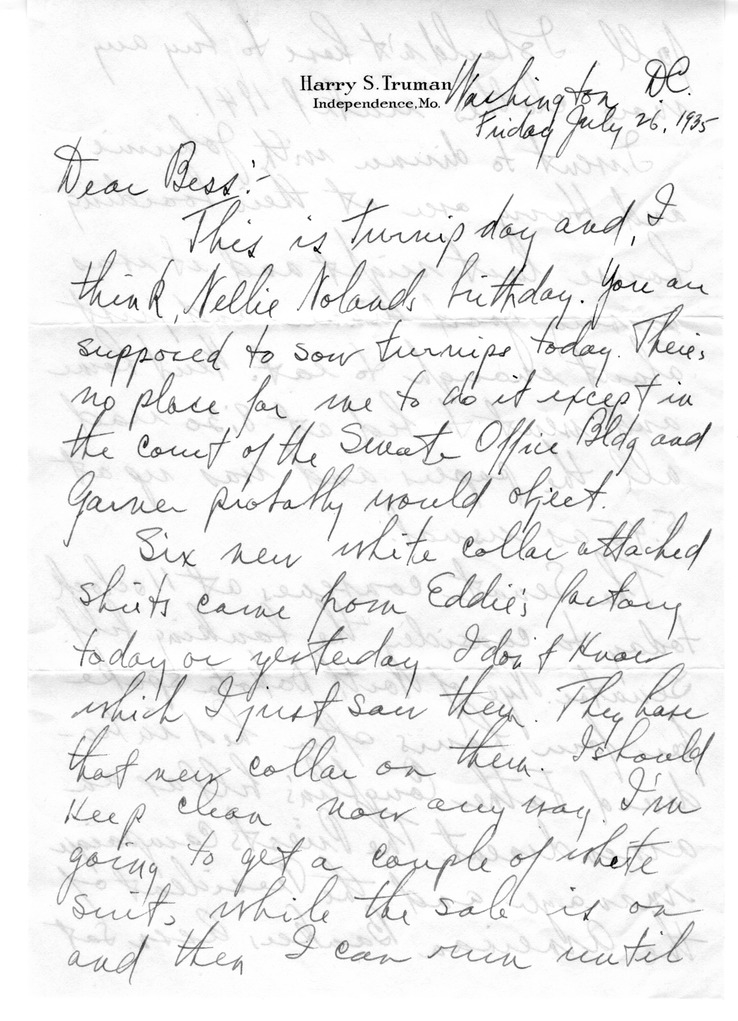 Harry S. Truman
Independence, Mo.
Washington, D.C.
Friday July 26, 1935
Dear Bess:-
This is turnip day and, I
think, Nellie Noland's birthday. You are
supposed to sow turnips today. There's
no place for me to do it except in
the court of the Senate Office Bldg and
Garner probably would object.
Six new white collar attached
shirts came from Eddie's factory
today or yesterday I don't know
which I just saw them. They have
that new collar on them. I should
keep clean now anyway. I'm
going to get a couple of white
suits while the sale is on
and then I can run until